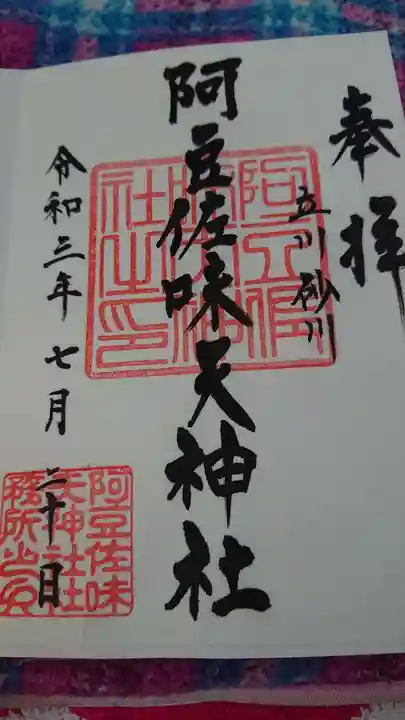 奉拝
立川 砂川
阿豆佐味天神社
令和三年七月二十日
阿豆佐味
天神社社
務所之印